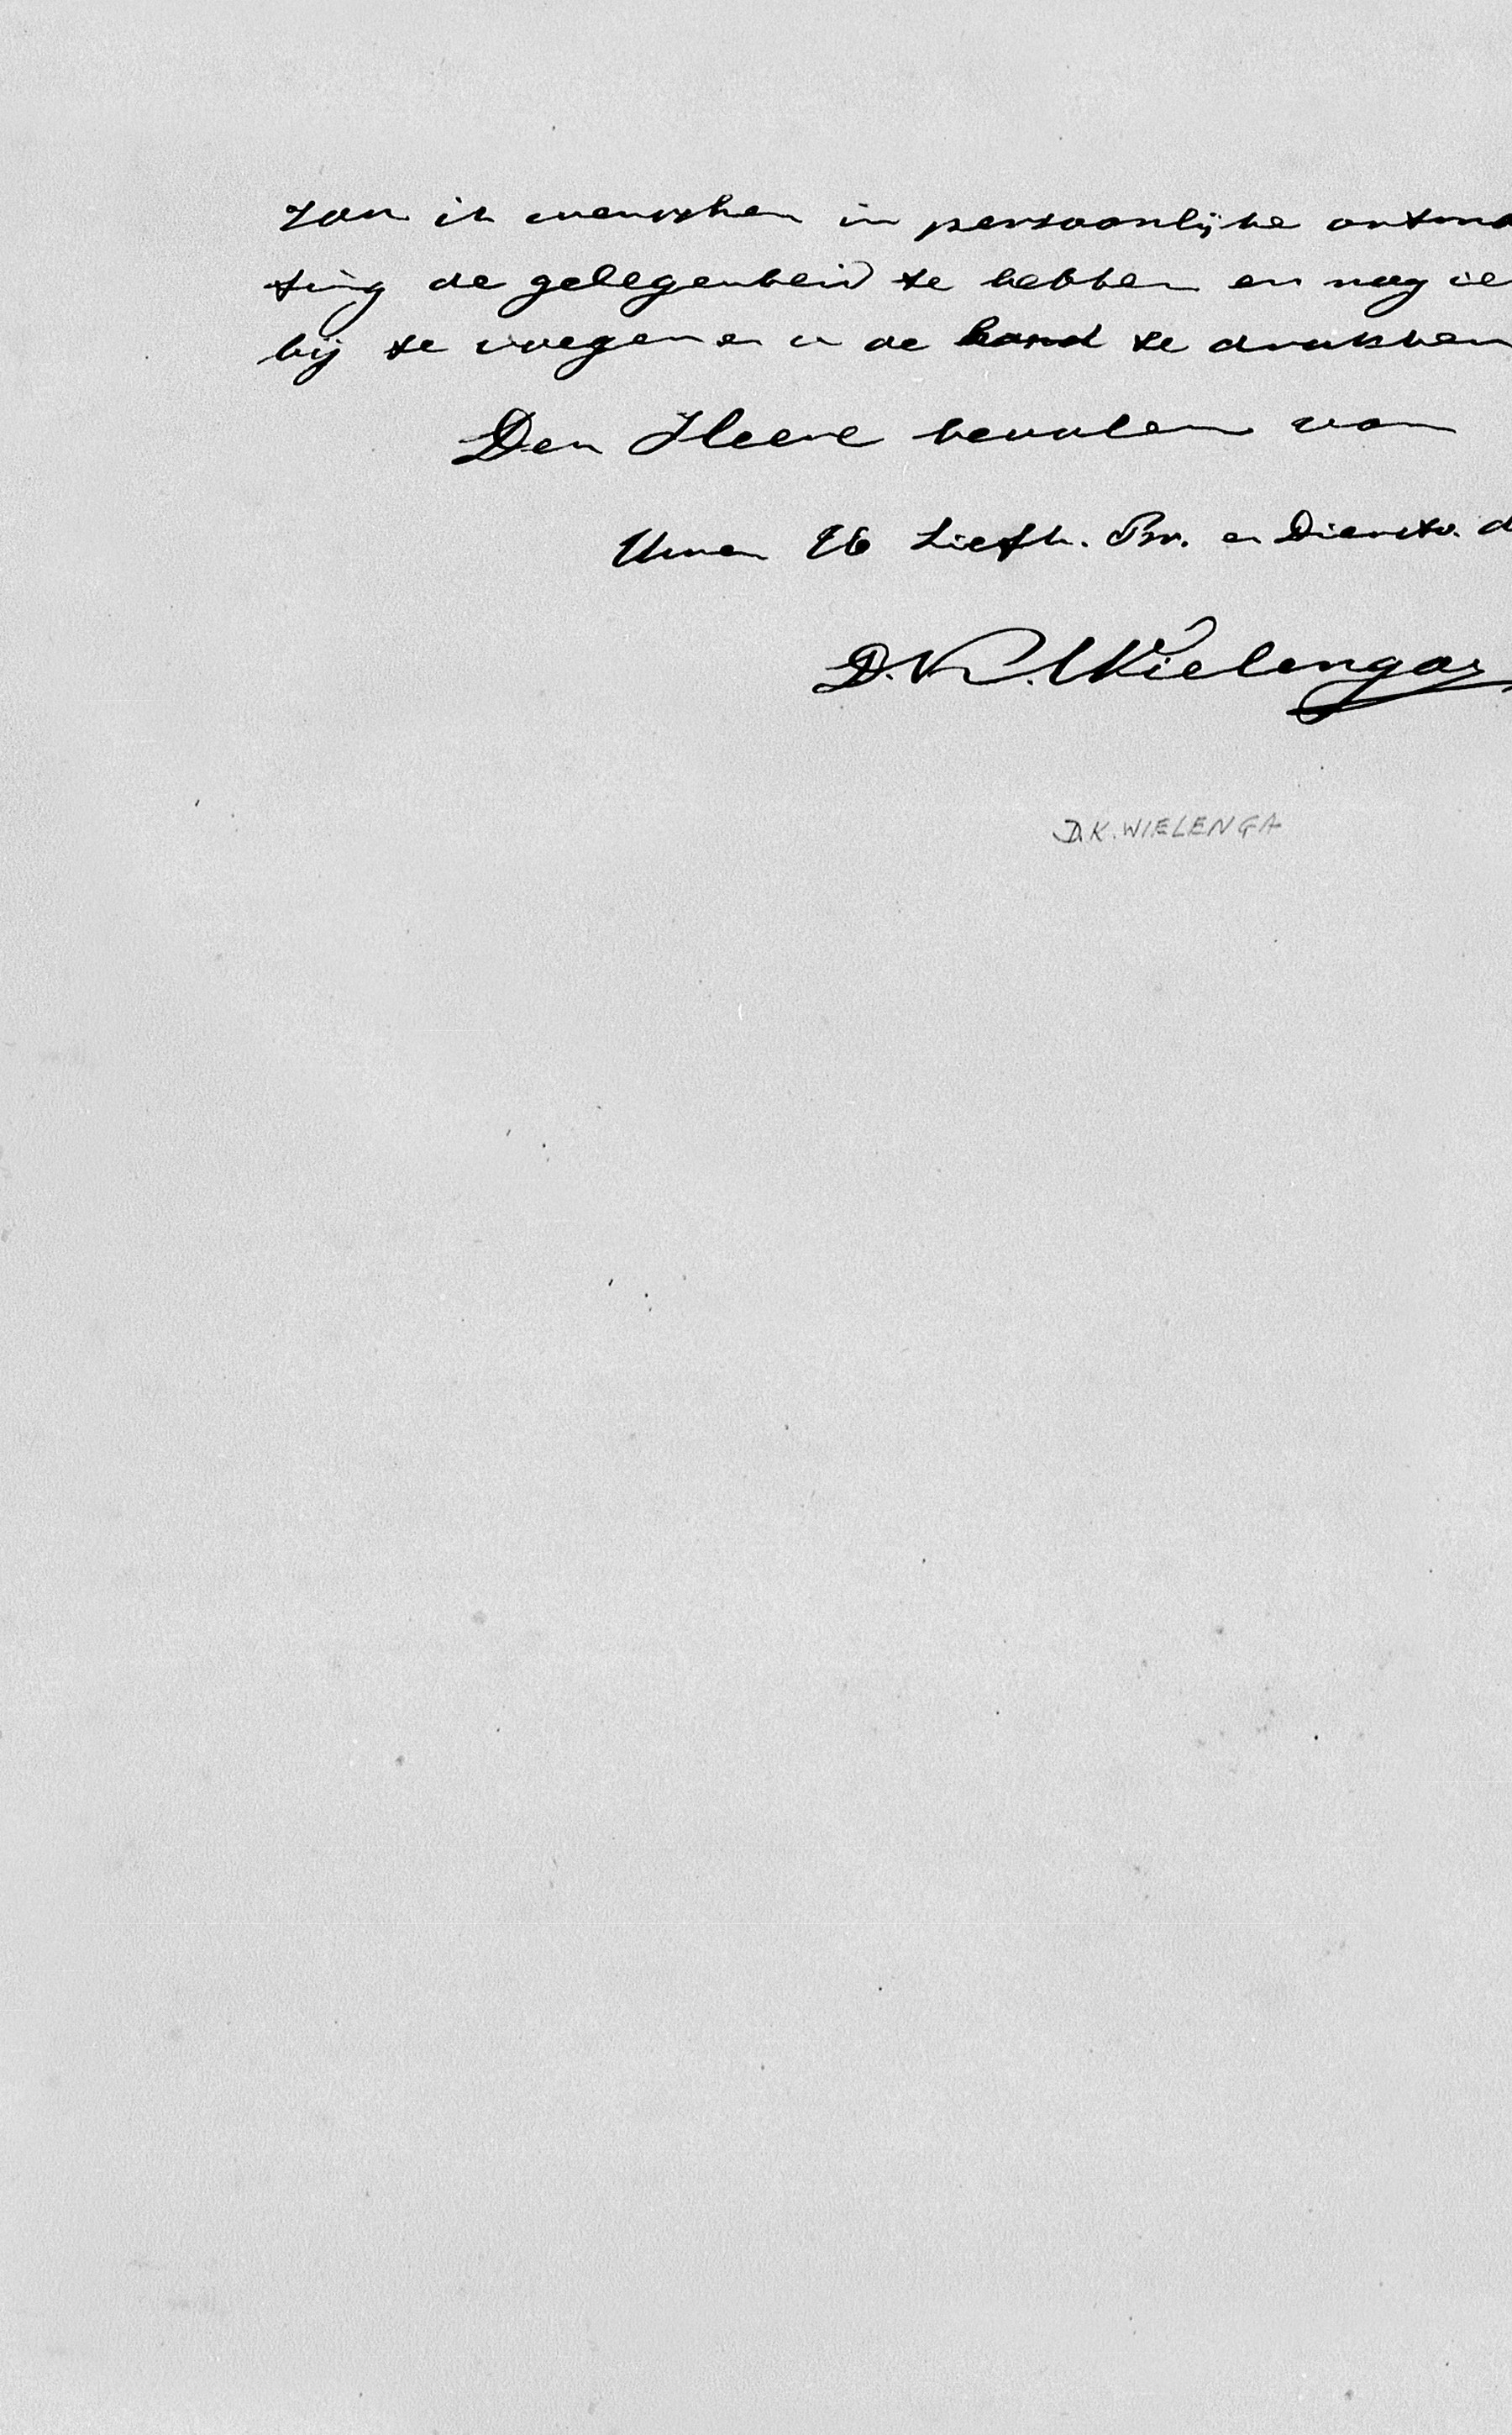 zou ik wenschen in persoonlijke ontmo
ting de gelegenheid te hebben er nog ie
bij te voegen en u de hand te drukken
Den Heere bevolen van
Uwen Liefh. Br. en Dienstv. d
D.K. Wielenga
D.K. WIELENGA